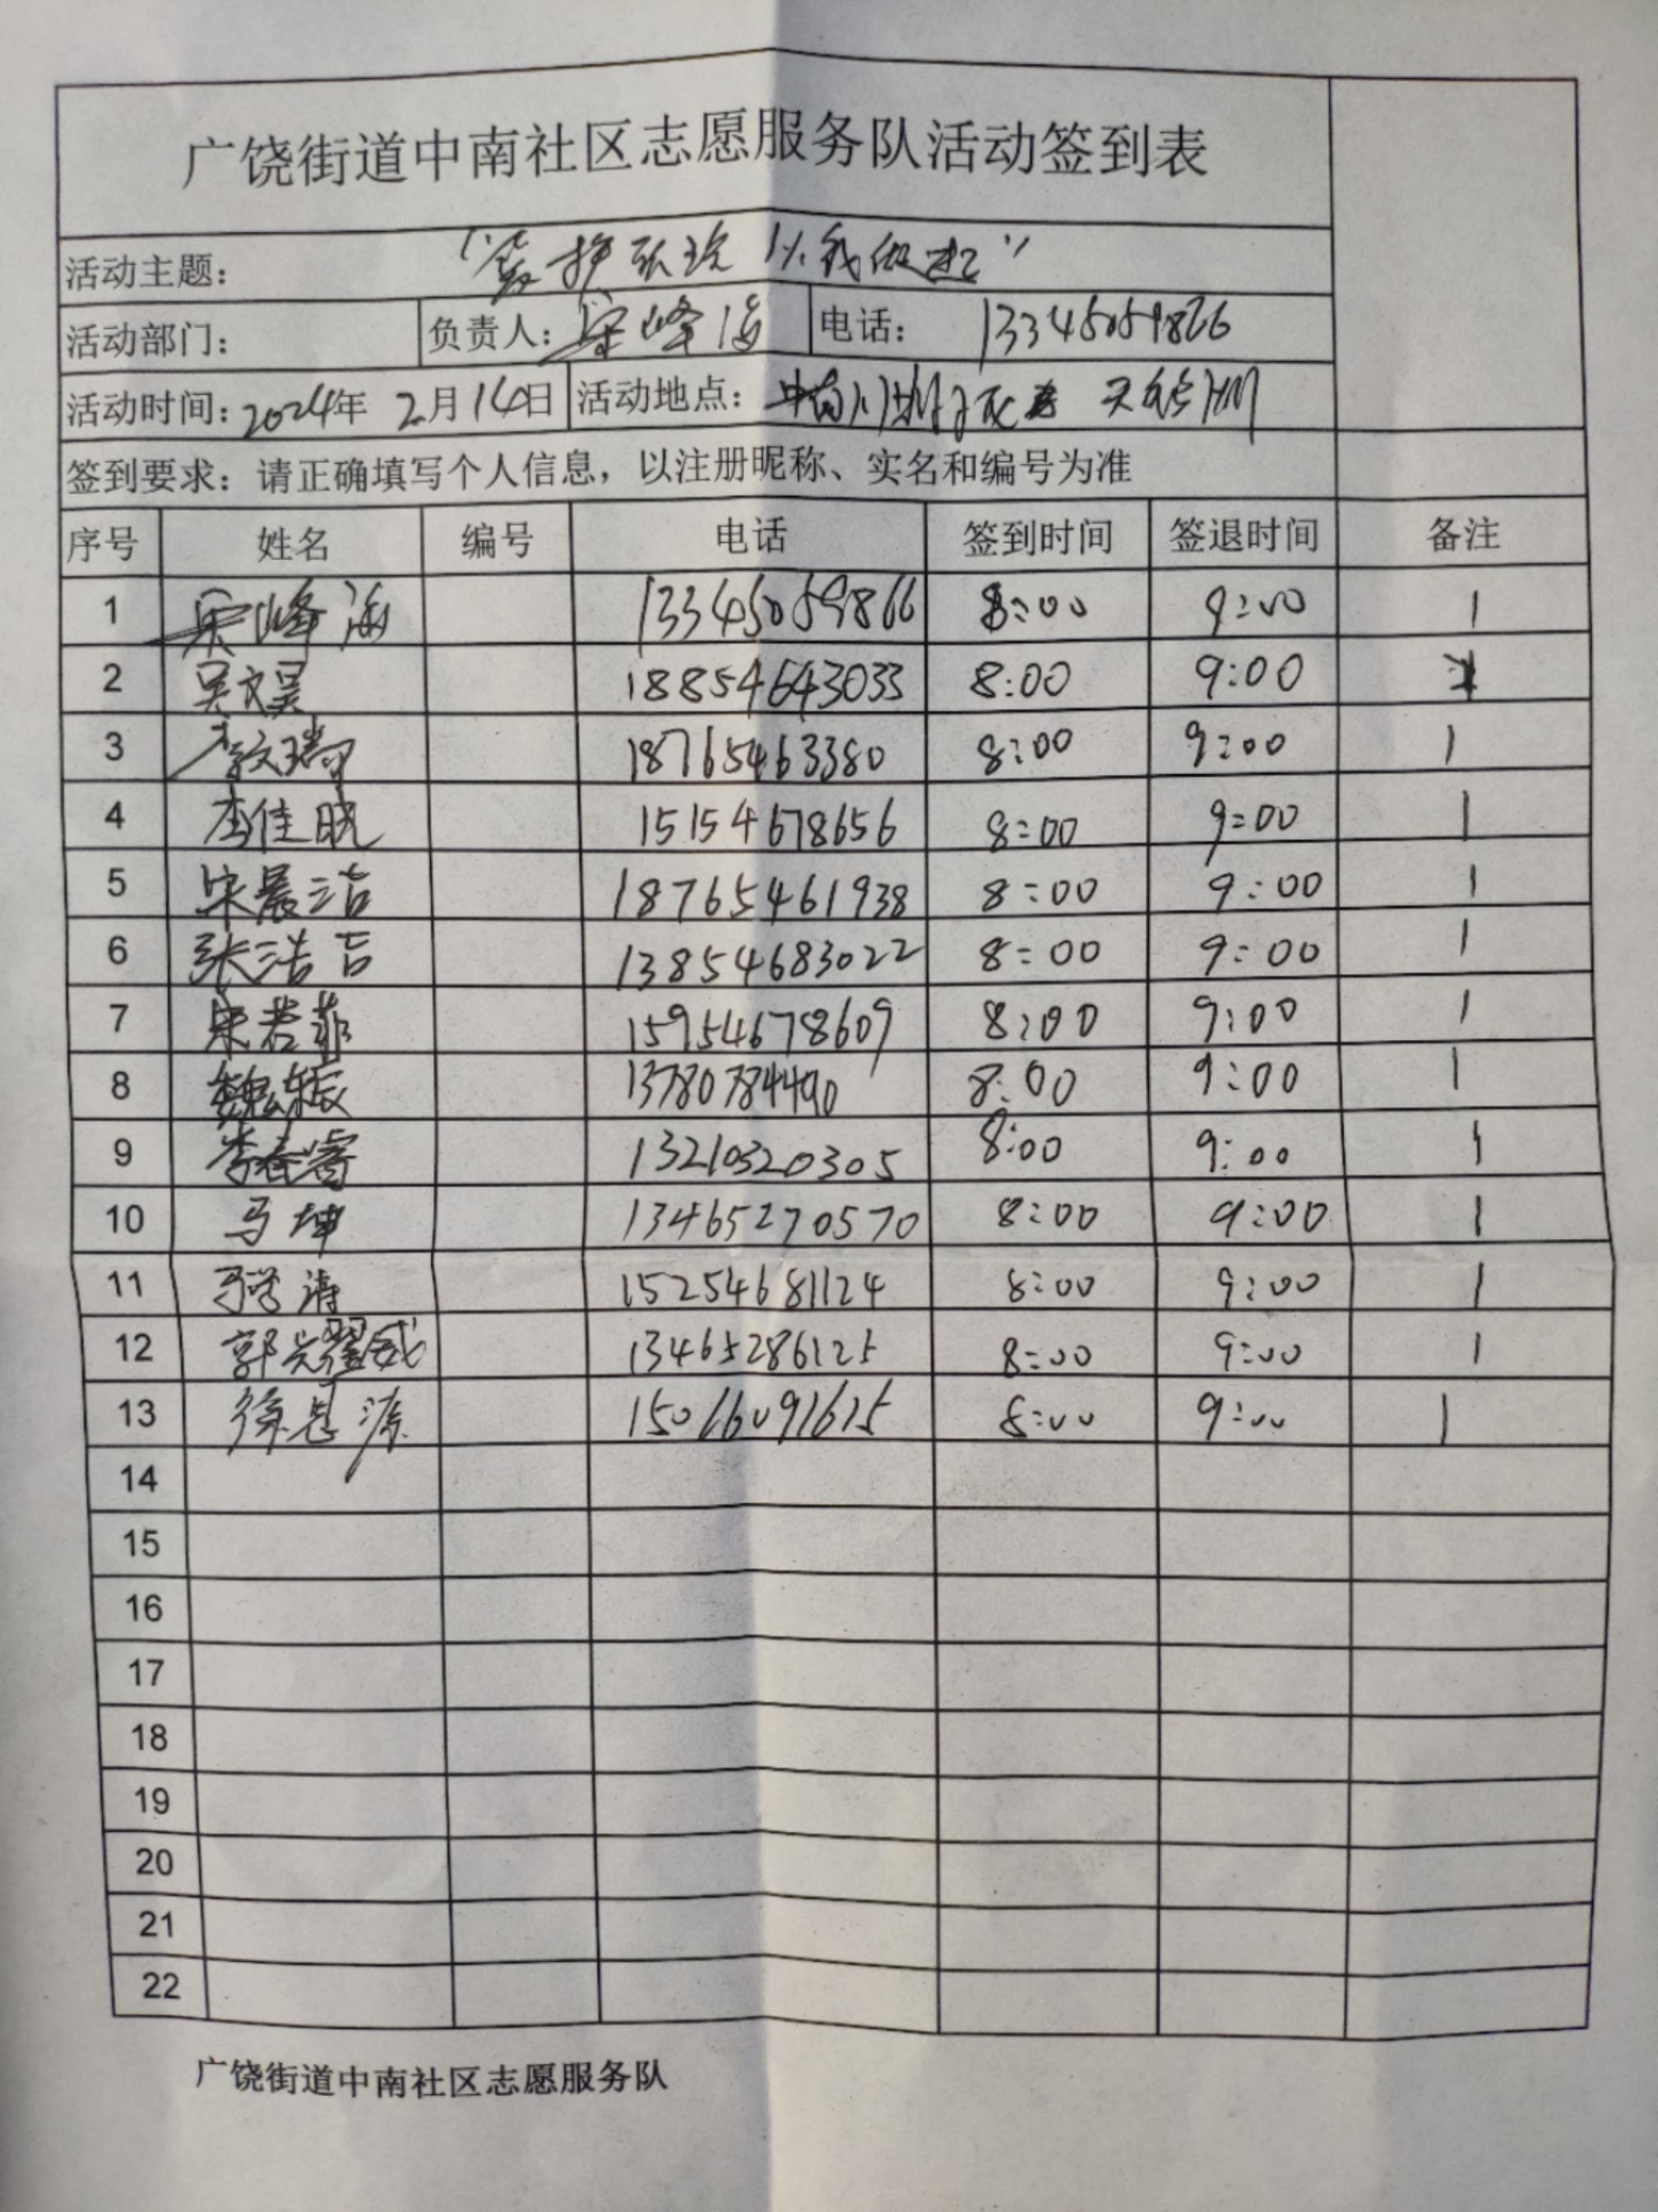 广饶街道中南社区志愿服务队活动签到表
活动主题：
活动部门： 负责人：宋峰海 电话：13345059866
活动时间：2024年 2月14日 活动地点：
签到要求：请正确填写个人信息，以注册昵称、实名和编号为准
序号 姓名 编号 电话 签到时间 签退时间 备注
1 宋峰海 13345059866 8:00 9:00 1
2 吴文昊 18854643033 8:00 9:00
3 18765463380 8:00 9:00 1
4 李佳晓 15154678656 8:00 9:00 1
5 宋晨洁 18765461938 8:00 9:00 1
6 张浩吉 13854683022 8:00 9:00 1
7 宋若菲 15954678609 8:00 9:00 1
8 13780784490 8:00 9:00 1
9 李春睿 13210320305 8:00 9:00 1
10 马坤 13465270570 8:00 9:00 1
11 15254681124 8:00 9:00 1
12 13465286125 8:00 9:00 1
13 徐思源 15066091615 8:00 9:00 1
14
15
16
17
18
19
20
21
22
广饶街道中南社区志愿服务队